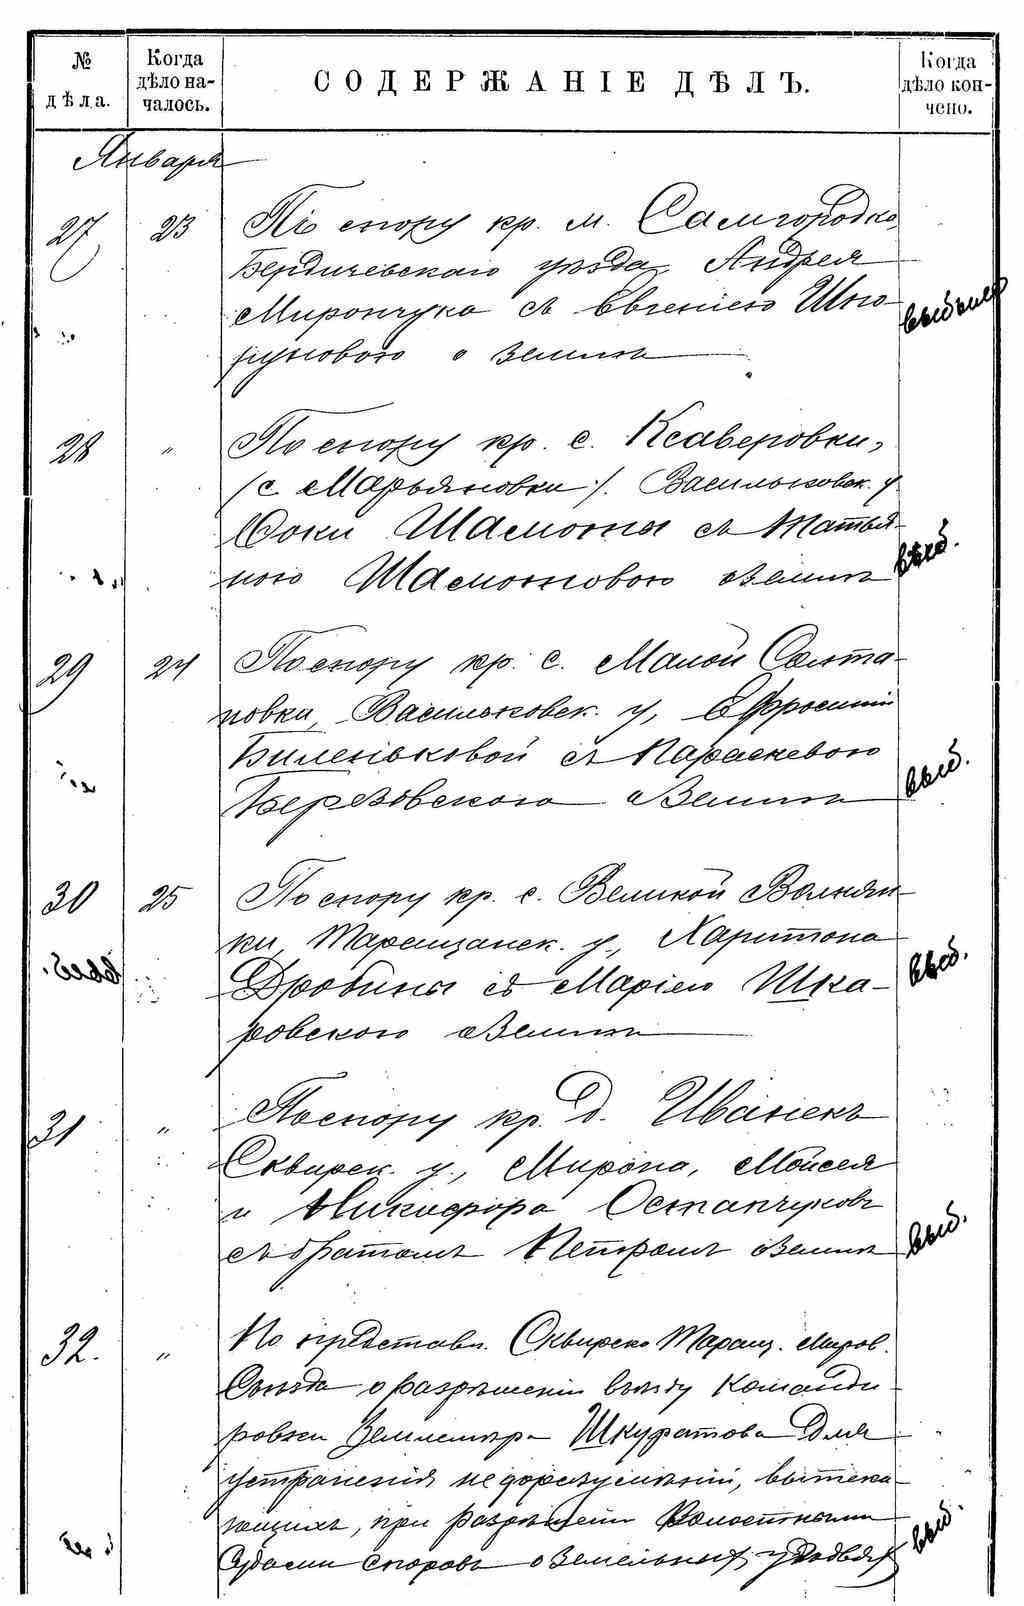 № дѣла.
Когда дѣло началось.
СОДЕРЖАНІЕ ДѢЛЪ.
Когда дѣло кончено.
Января
27 23 По спору кр. м. Самгородка,
Бердичевскаго уѣзда, Андрея
Мирончука съ Евгеніею Шко-
о землѣ
28 " По спору кр. с. Ксаверовки,
(с. Марьяновки). Васильковск. у.
Фоки Шамоты съ Татья-
ною Шамотовою о землѣ
выб.
29 24 По спору кр. с. Малой Солта-
новки, Васильковск. у, Ефросиніи
Биленьковой съ Параскевою
Березовскою о землѣ
выб.
30 25 По спору кр. с. Великой Волнян-
ки, Таращанск. у., Харитона
Дробины съ Маріею Шка-
ровскою о землѣ
выб.
31 " По спору кр. д. Иванекъ
Сквирск. у., Мирона, Мойсея
и Никифора Остапчуковъ
съ братомъ Петромъ о землѣ
выб.
32. " По представл. Сквирско Таращ. Миров.
Съѣзда о разрѣшеніи въѣзду команди-
ровки Землемѣра Шкуратова для
устраненія недоразумѣній, вытека-
ющихъ, при разрѣшеніи Волостными
Судами споровъ о земельныхъ
выб.